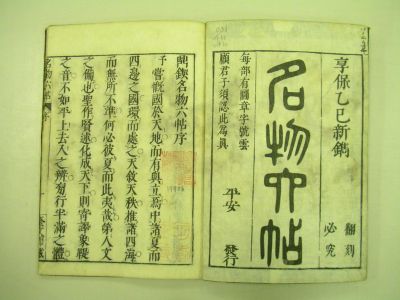 享保乙巳新鐫
名物六帖
每部有圖章字號雲
願君子須認此爲眞
平安
發行
翻刻
必究
鼎鍥名物六帖序
予嘗慨國於天地而有與立焉中諸夏而
四邊之國環而處之天敘天秩推諸四海
而無所不準何必彼夏而此夷哉第人文
之備也聖作賢述化成天下則寄譯象鞮
之音不如平上去入之辨匆行半滿之體
名物六帖
序